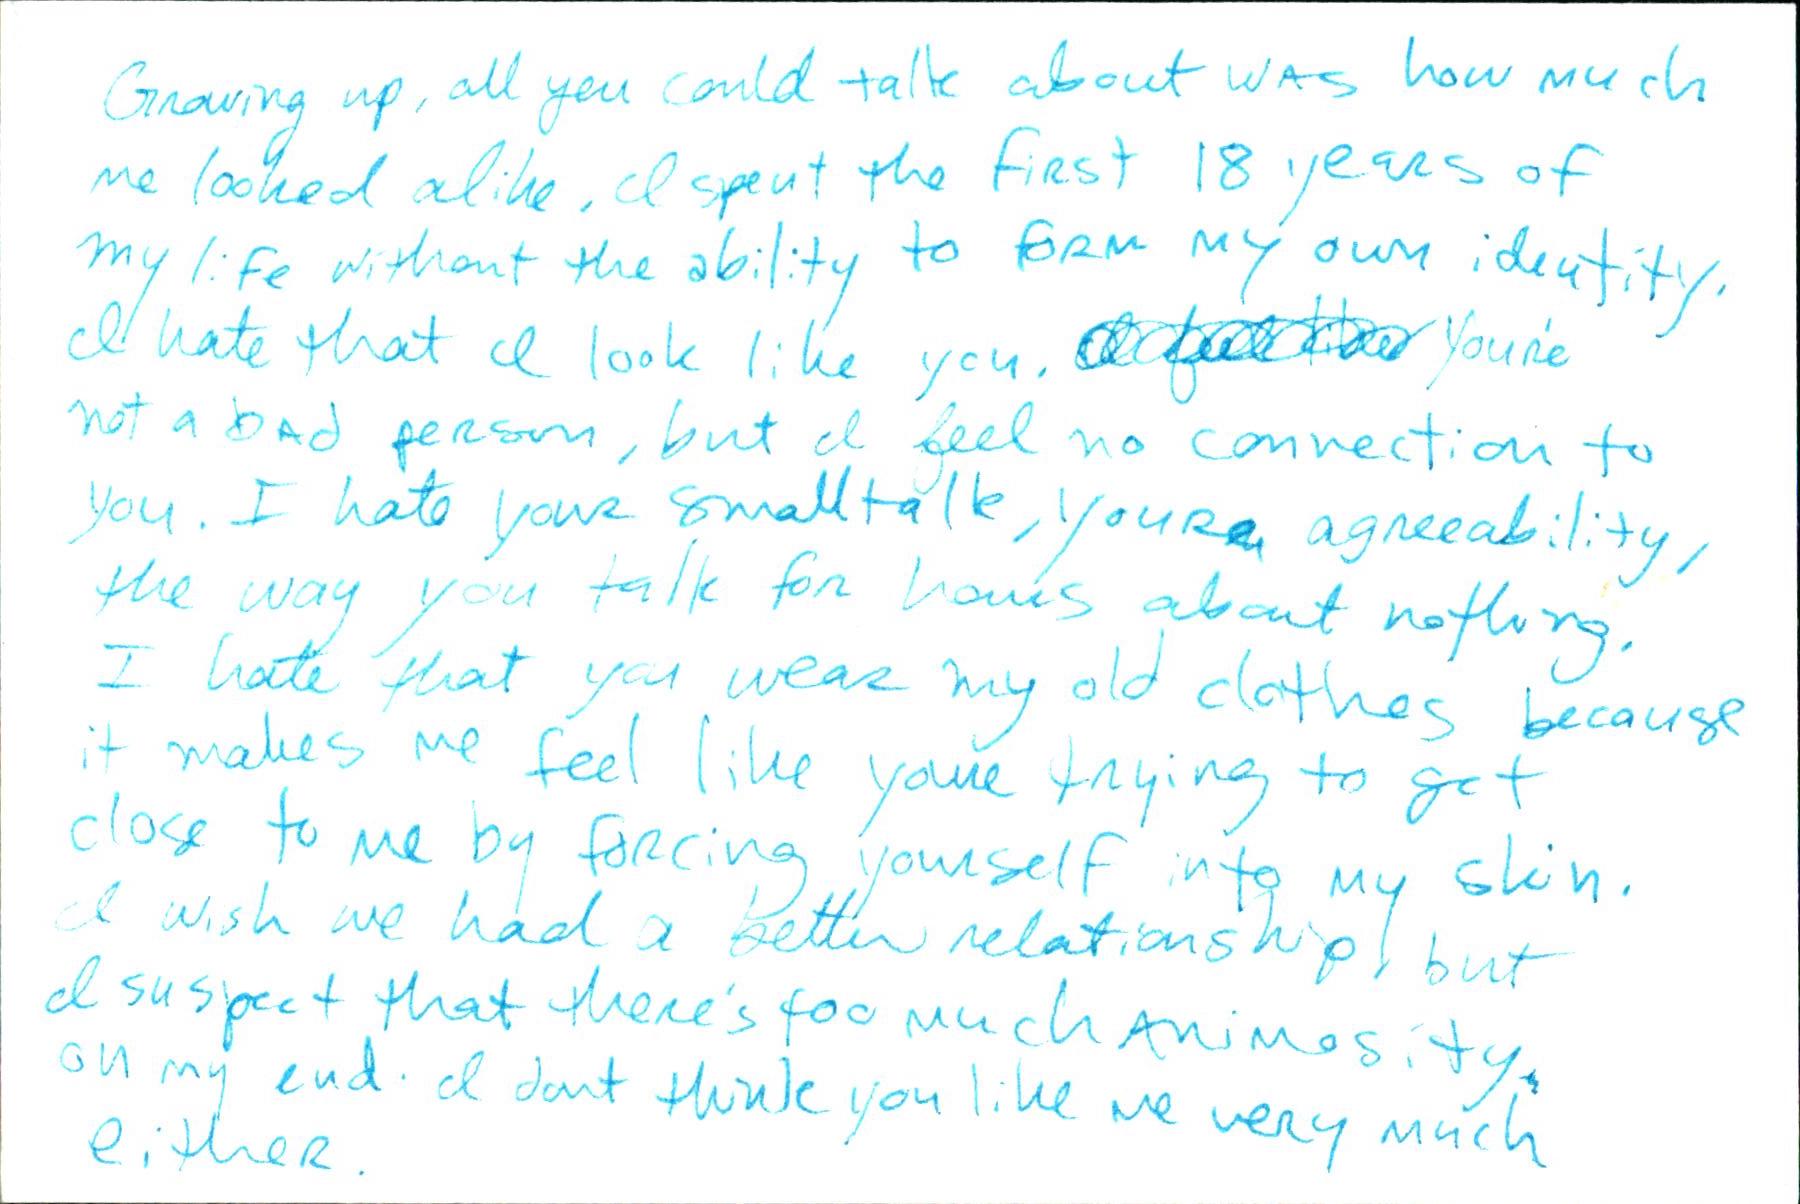 Growing up, all you could talk about was how much
we looked alike. I spent the first 18 years of
my life without the ability to form my own identity.
I hate that I look like you. You're
not a bad person, but I feel no connection to
you. I hate your smalltalk, your agreeability,
the way you talk for hours about nothing.
I hate that you wear my old clothes because
it makes me feel like youre trying to get
close to me by forcing yourself into my skin.
I wish we had a better relationship, but
I suspect that there's too much animosity
on my end. I dont think you like me very much
either.